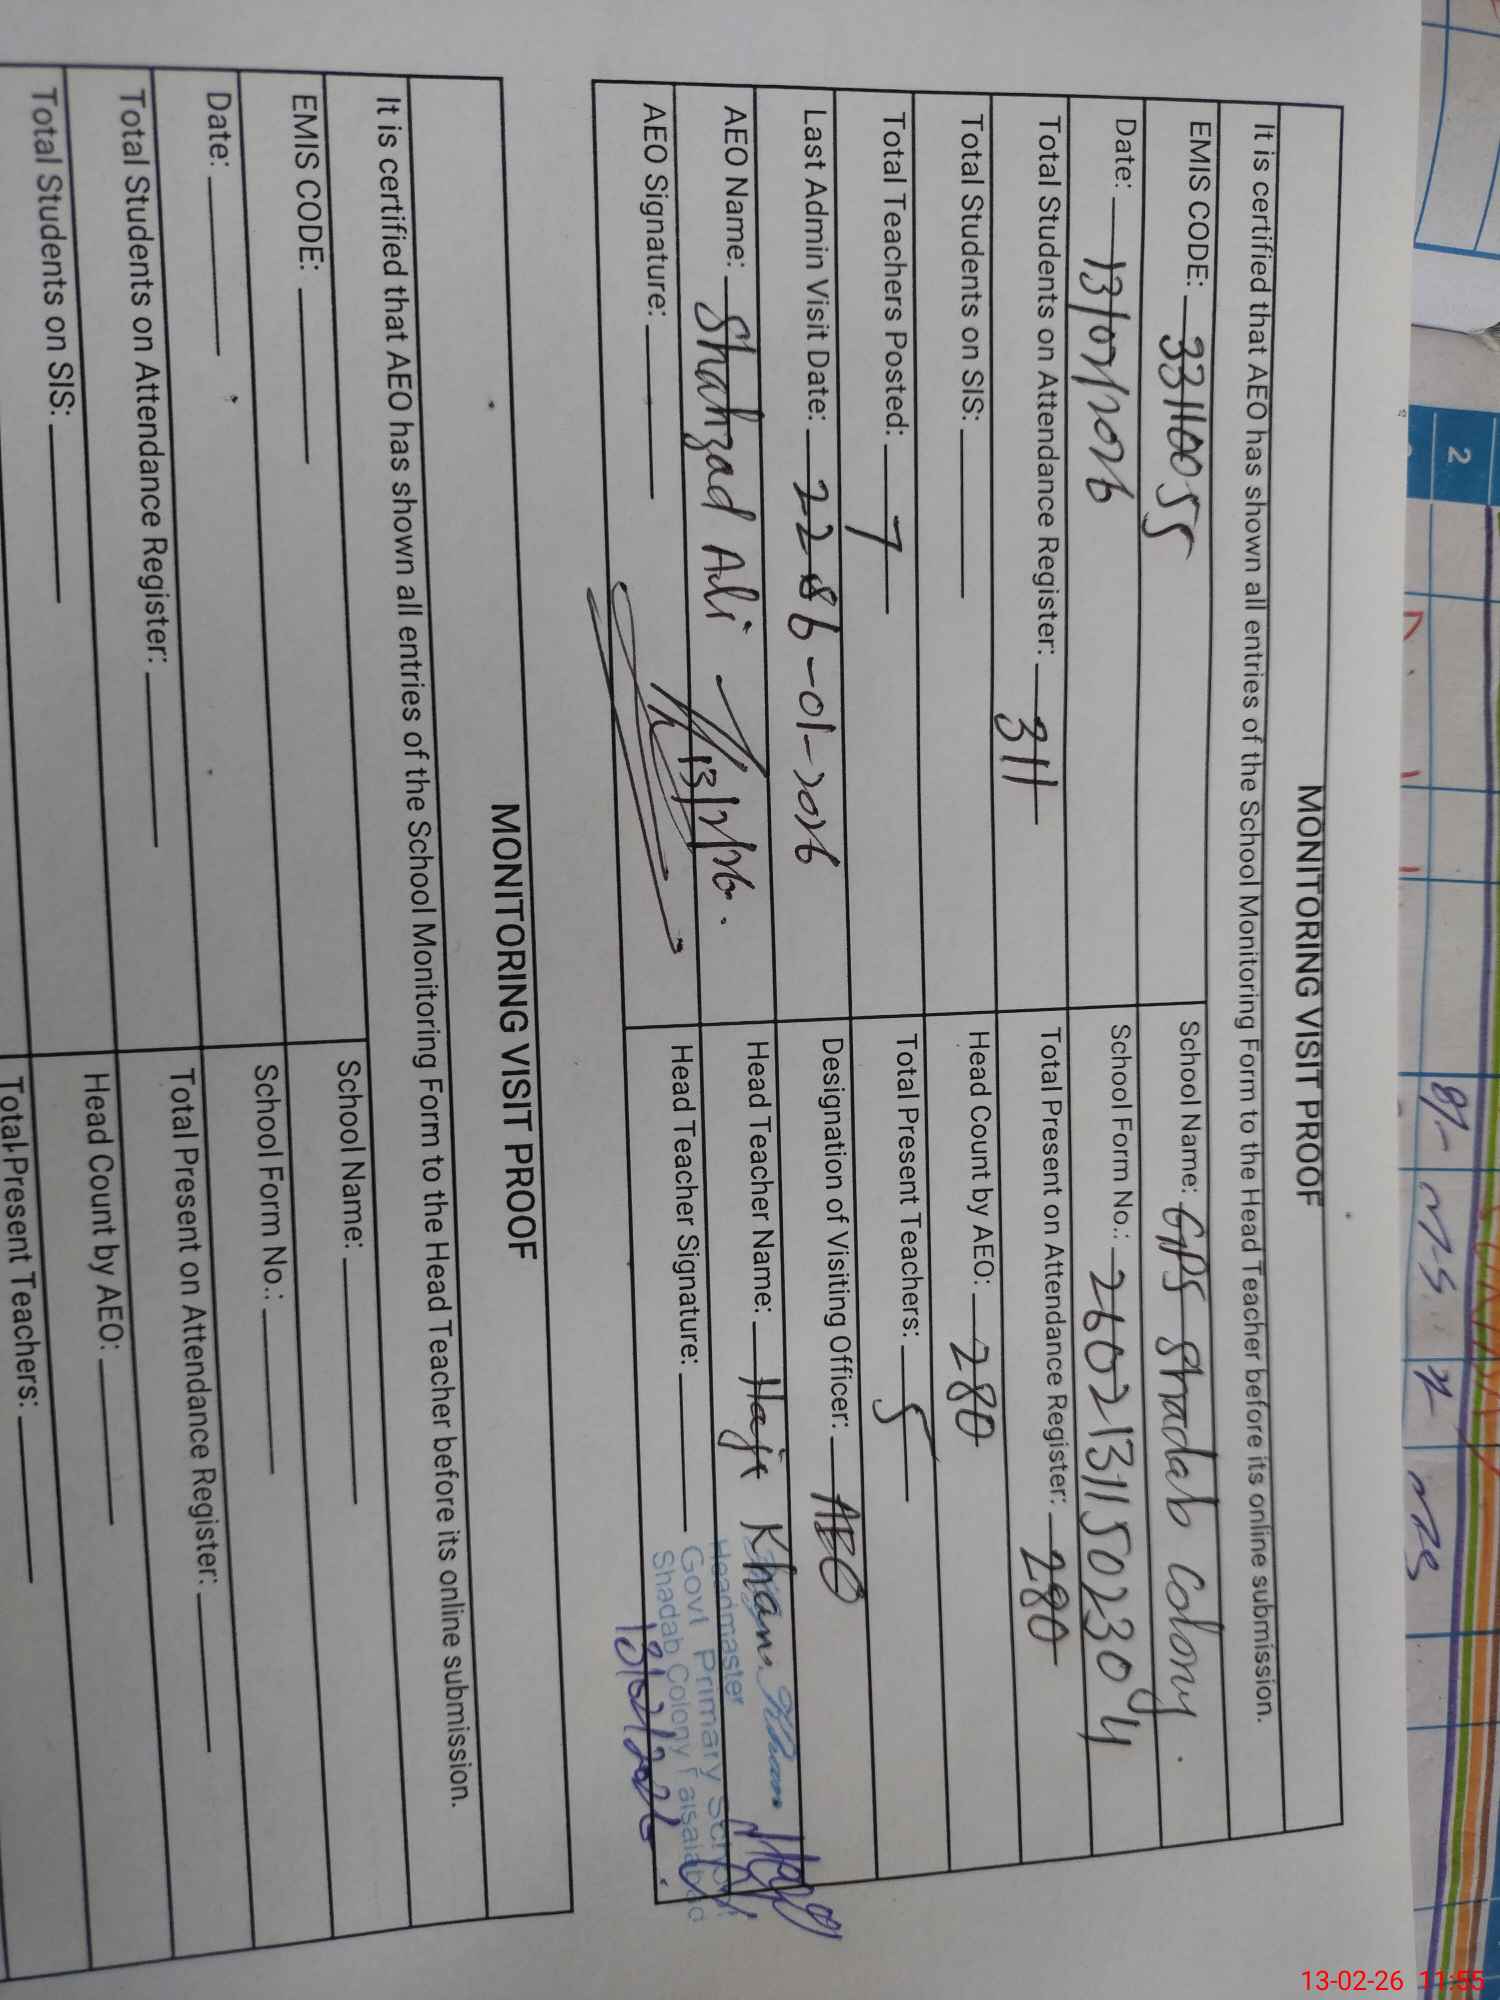 MONITORING VISIT PROOF
It is certified that AEO has shown all entries of the School Monitoring Form to the Head Teacher before its online submission.
EMIS CODE: 33110055 School Name: GPS Shadab Colony.
Date: 13/02/2026 School Form No.: 26021311502304
Total Students on Attendance Register: 311 Total Present on Attendance Register: 280
Total Students on SIS: Head Count by AEO: 280
Total Teachers Posted: 7 Total Present Teachers: 5
Last Admin Visit Date: 26-01-2026 Designation of Visiting Officer: AEO
AEO Name: Shahzad Ali Head Teacher Name: Khan
13/2/26.
AEO Signature: Head Teacher Signature:
Headmaster
Govt Primary School
Shadab Colony Faisalabad
13/02/2026
MONITORING VISIT PROOF
It is certified that AEO has shown all entries of the School Monitoring Form to the Head Teacher before its online submission.
EMIS CODE: School Name:
Date: School Form No.:
Total Students on Attendance Register: Total Present on Attendance Register:
Total Students on SIS: Head Count by AEO:
Total Present Teachers:
2
13-02-26 11:55